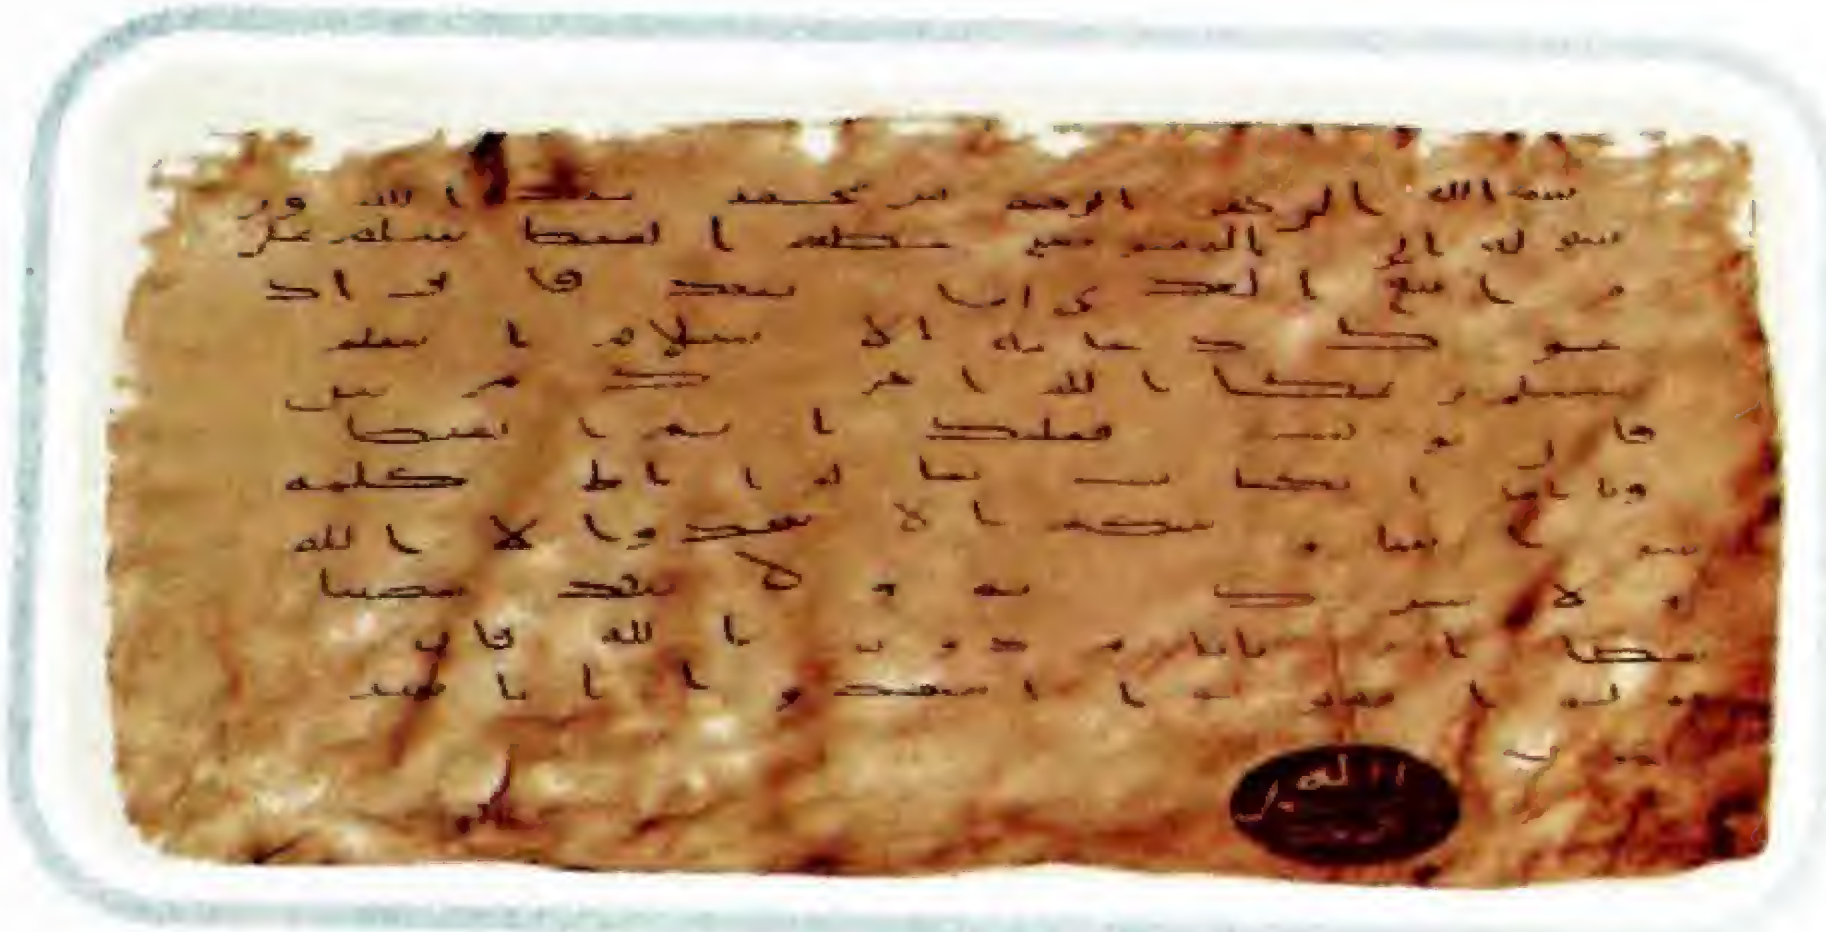 بسم الله الرحمن الرحيم من محمد عبد الله ور
سوله الى المقوقس عظيم القبط سلم على
من اتبع الهدى اما بعد فانى اد
عوك بدعاية الاسلام اسلم
تسلم يؤتك الله اجرك مرتين
فان توليت فعليك اثم القبط
ويا اهل الكتاب تعالوا الى كلمة
سوا بيننا وبينكم الا نعبد الا الله
ولا نشرك به ولا يتخذ بعضنا
بعضا اربابا من دون الله فان
تولوا فقولوا اشهدوا بانا مسلمـ
ون